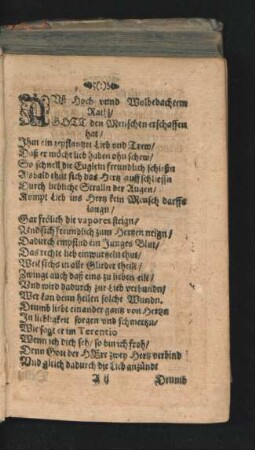 AUß Hoch vnnd Wolbedachtem
Raht/
GOTT den Menschen erschaffen
hat/
Ihm ein gepflantzt Lieb vnd Trew/
Daß er möcht lieb haben ohn schew/
So schnell die Euglein freundlich schiessn
Alsbald theit sich das Hertz auffschliessn
Durch liebliche Stralln der Augen/
Kompt Lieb ins Hertz kein Mensch darffs
laugn/
Gar frölich die vapores steign/
Vnd sich freundlich zum Hertzen neign/
Dadurch empfind ein Junges Blut/
Das recht lieb einwurtzeln thut/
Weil sichs in alle Glieder theilt/
Zwingt auch daß eins zu lieben eilt/
Vnd wird dadurch zur Lieb verbundn/
Wer kan denn heilen solche Wundn.
Drumb liebt einander gantz von Hertzn
In liebligkeit sorgen vnd schmertzn/
Wie sagt er im Terentio
Wenn ich dich seh/ so bin ich froh/
Denn Gott der HErr zwey Hertz verbind
Vnd gleich dadurch die Lieb anzündt
A ij Drumb